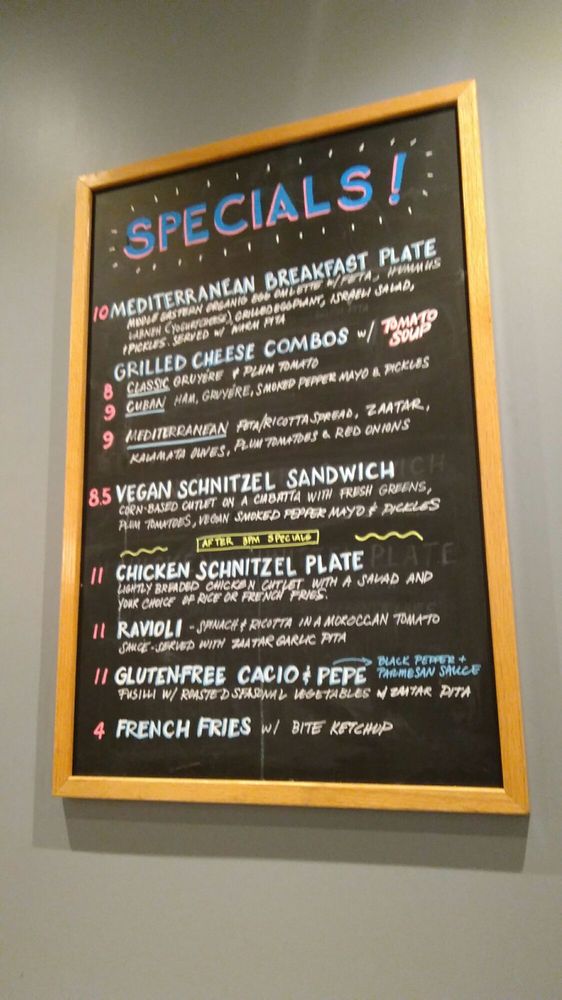 SPECIALS!
10 MEDITERRANEAN BREAKFAST PLATE
MIDDLE EASTERN ORGANIC EGG OMLETTE W/FETA, HUMMUS
LABNEH (YOGURTCHEESE), GRILLED EGGPLANT, ISRAELI SALAD,
& PICKLES. SERVED W/ WARM PITA
GRILLED CHEESE COMBOS w/ TOMATO SOUP
8 CLASSIC GRUYÉRE & PLUM TOMATO
9 CUBAN HAM, GRUYÉRE, SMOKED PEPPER MAYO & PICKLES
9 MEDITERRANEAN FETA/RICOTTA SPREAD, ZAATAR,
KALAMATA OLIVES, PLUM TOMATOES & RED ONIONS
8.5 VEGAN SCHNITZEL SANDWICH
CORN-BASED CUTLET ON A CIABATTA WITH FRESH GREENS,
PLUM TOMATOES, VEGAN SMOKED PEPPER MAYO & PICKLES
AFTER 3PM SPECIALS
11 CHICKEN SCHNITZEL PLATE
LIGHTLY BREADED CHICKEN CUTLET WITH A SALAD AND
YOUR CHOICE OF RICE OR FRENCH FRIES.
11 RAVIOLI - SPINACH & RICOTTA IN A MOROCCAN TOMATO
SAUCE - SERVED WITH ZAATAR GARLIC PITA
11 GLUTENFREE CACIO & PEPE → BLACK PEPPER + PARMESAN SAUCE
FUSILLI W/ ROASTED SEASONAL VEGETABLES W/ ZAATAR PITA
4 FRENCH FRIES W/ BITE KETCHUP